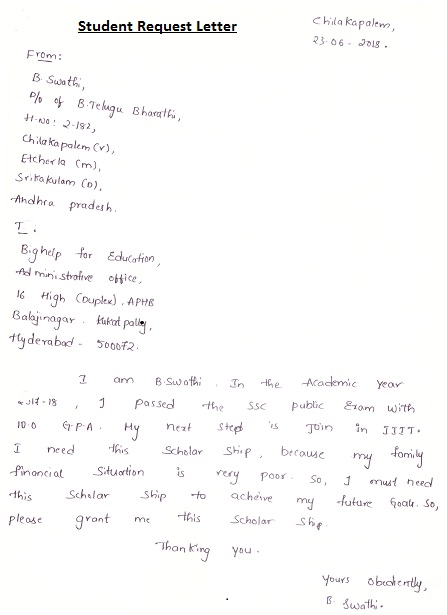 Student Request Letter
Chilakapalem,
23-06-2018.
From:
B. Swathi,
D/o of B. Telugu Bharathi,
H-No: 2-182,
Chilakapalem (v),
Etcherla (m),
Srikakulam (D),
Andhra pradesh.
Bighelp for Education,
Administrative office,
16 High (Duplex), APHB
Balajinagar. Kukatpally,
Hyderabad - 500072.
I am B. Swathi. In the Academic year
2017-18, I passed the SSC public Exam with
10.0 G.P.A. My next step is Join in IIIT.
I need this Scholar Ship, because my family
financial Situation is very poor. So, I must need
this Scholar Ship to acheive my future Goals. So,
please grant me this Scholar Ship.
Thanking you.
Yours obediently,
B. Swathi.